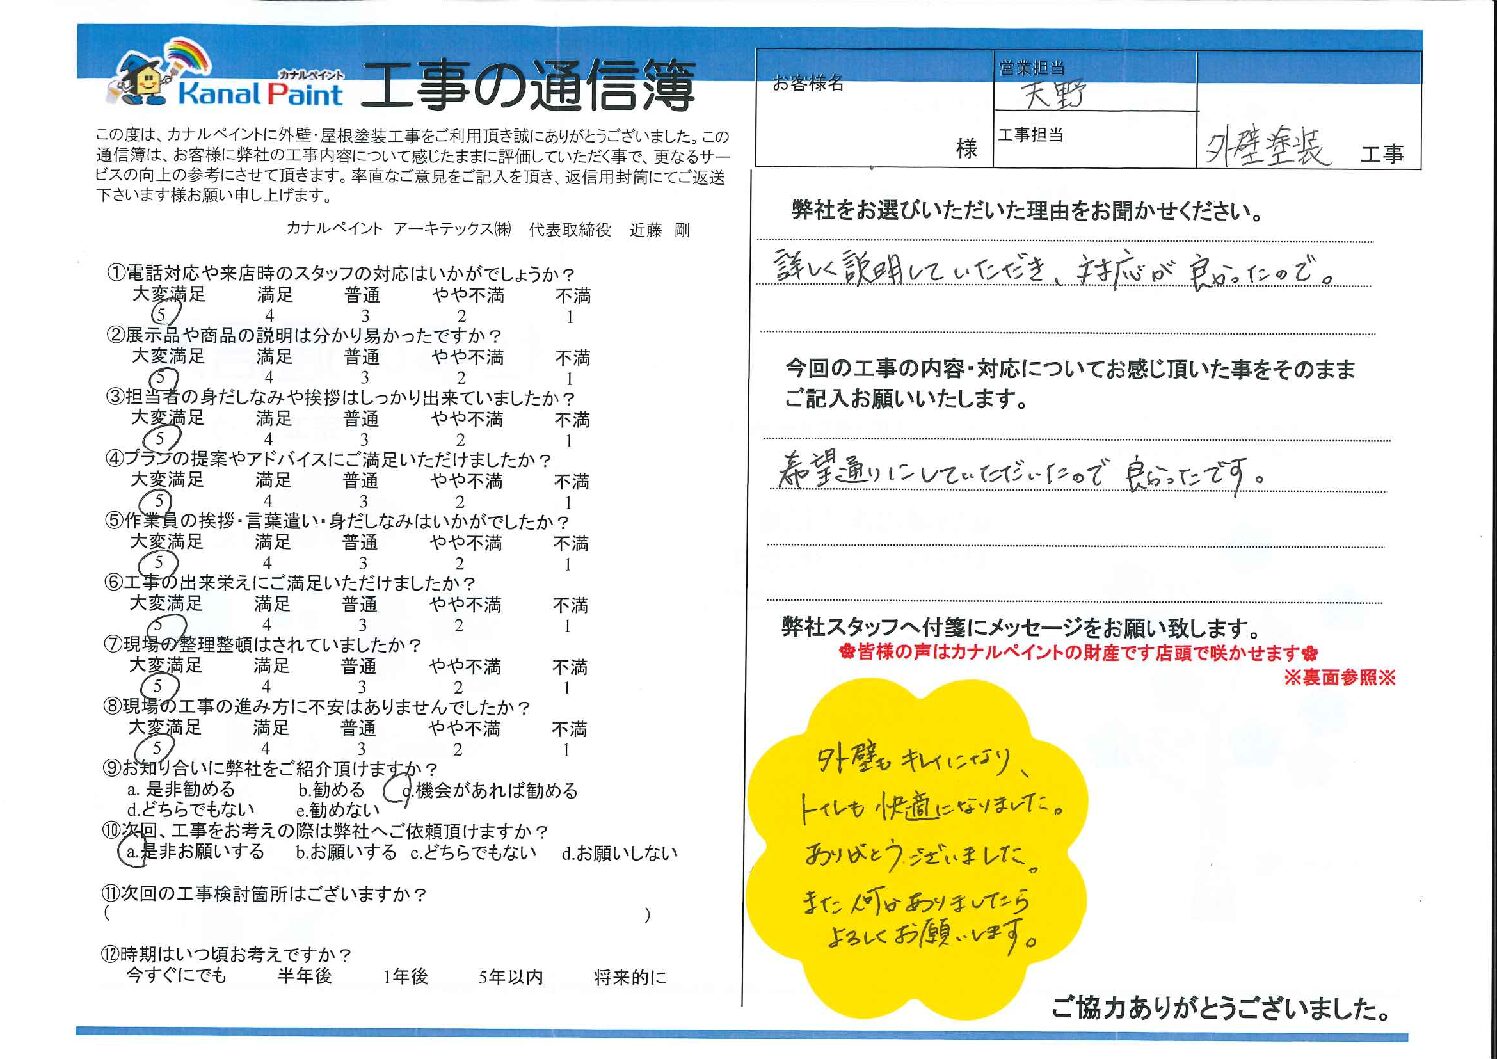 カナルペイント
Kanal Paint
工事の通信簿
この度は、カナルペイントに外壁・屋根塗装工事をご利用頂き誠にありがとうございました。この
通信簿は、お客様に弊社の工事内容について感じたままに評価していただく事で、更なるサー
ビスの向上の参考にさせて頂きます。率直なご意見をご記入を頂き、返信用封筒にてご返送
下さいます様お願い申し上げます。
カナルペイント アーキテックス㈱ 代表取締役 近藤 剛
①電話対応や来店時のスタッフの対応はいかがでしょうか？
大変満足 満足 普通 やや不満 不満
5 4 3 2 1
②展示品や商品の説明は分かり易かったですか？
大変満足 満足 普通 やや不満 不満
5 4 3 2 1
③担当者の身だしなみや挨拶はしっかり出来ていましたか？
大変満足 満足 普通 やや不満 不満
5 4 3 2 1
④プランの提案やアドバイスにご満足いただけましたか？
大変満足 満足 普通 やや不満 不満
5 4 3 2 1
⑤作業員の挨拶・言葉遣い・身だしなみはいかがでしたか？
大変満足 満足 普通 やや不満 不満
5 4 3 2 1
⑥工事の出来栄えにご満足いただけましたか？
大変満足 満足 普通 やや不満 不満
5 4 3 2 1
⑦現場の整理整頓はされていましたか？
大変満足 満足 普通 やや不満 不満
5 4 3 2 1
⑧現場の工事の進み方に不安はありませんでしたか？
大変満足 満足 普通 やや不満 不満
5 4 3 2 1
⑨お知り合いに弊社をご紹介頂けますか？
a. 是非勧める b.勧める c.機会があれば勧める
d.どちらでもない e.勧めない
⑩次回、工事をお考えの際は弊社へご依頼頂けますか？
a.是非お願いする b.お願いする c.どちらでもない d.お願いしない
⑪次回の工事検討箇所はございますか？
( )
⑫時期はいつ頃お考えですか？
今すぐにでも 半年後 1年後 5年以内 将来的に
お客様名
様
営業担当
天野
工事担当
外壁塗装 工事
弊社をお選びいただいた理由をお聞かせください。
詳しく説明していただき、対応が良かったので。
今回の工事の内容・対応についてお感じ頂いた事をそのまま
ご記入お願いいたします。
希望通りにしていただいたので良かったです。
弊社スタッフへ付箋にメッセージをお願い致します。
✿皆様の声はカナルペイントの財産です店頭で咲かせます✿
※裏面参照※
外壁もキレイになり、
トイレも快適になりました。
ありがとうございました。
また何かありましたら
よろしくお願いします。
ご協力ありがとうございました。